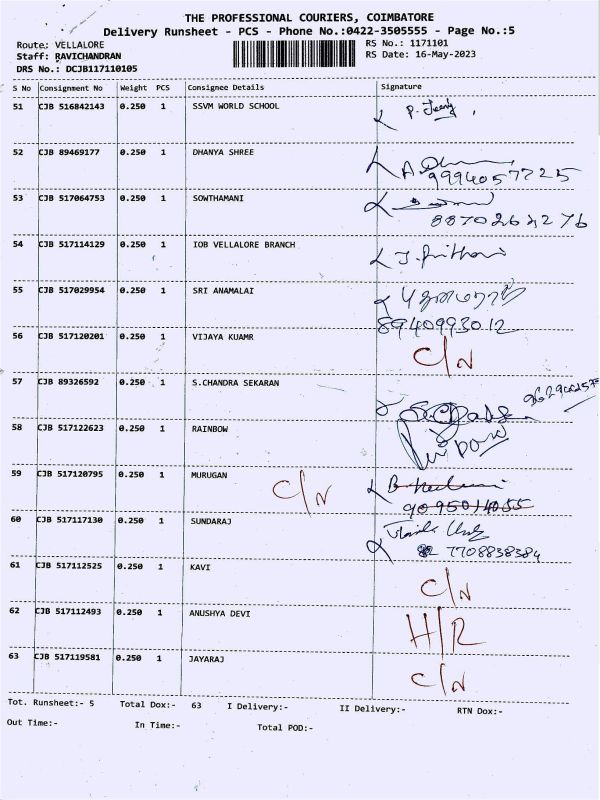 THE PROFESSIONAL COURIERS, COIMBATORE
Delivery Runsheet - PCS - Phone No.:0422-3505555 - Page No.:5
Route: VELLALORE RS No.: 1171101
Staff: RAVICHANDRAN RS Date: 16-May-2023
DRS No.: DCJB117110105
S No Consignment No Weight PCS Consignee Details Signature
51 CJB 516842143 0.250 1 SSVM WORLD SCHOOL
52 CJB 89469177 0.250 1 DHANYA SHREE
9994057725
53 CJB 517064753 0.250 1 SOWTHAMANI
8870264276
54 CJB 517114129 0.250 1 IOB VELLALORE BRANCH
55 CJB 517029954 0.250 1 SRI ANAMALAI
8940993012
56 CJB 517120201 0.250 1 VIJAYA KUAMR
C/N
57 CJB 89326592 0.250 1 S.CHANDRA SEKARAN
58 CJB 517122623 0.250 1 RAINBOW
59 CJB 517120795 0.250 1 MURUGAN C/N
9095014055
60 CJB 517117130 0.250 1 SUNDARAJ
7708838384
61 CJB 517112525 0.250 1 KAVI
C/N
62 CJB 517112493 0.250 1 ANUSHYA DEVI H/R
63 CJB 517119581 0.250 1 JAYARAJ
C/N
Tot. Runsheet:- 5 Total Dox:- 63 I Delivery:- II Delivery:- RTN Dox:-
Out Time:- In Time:- Total POD:-